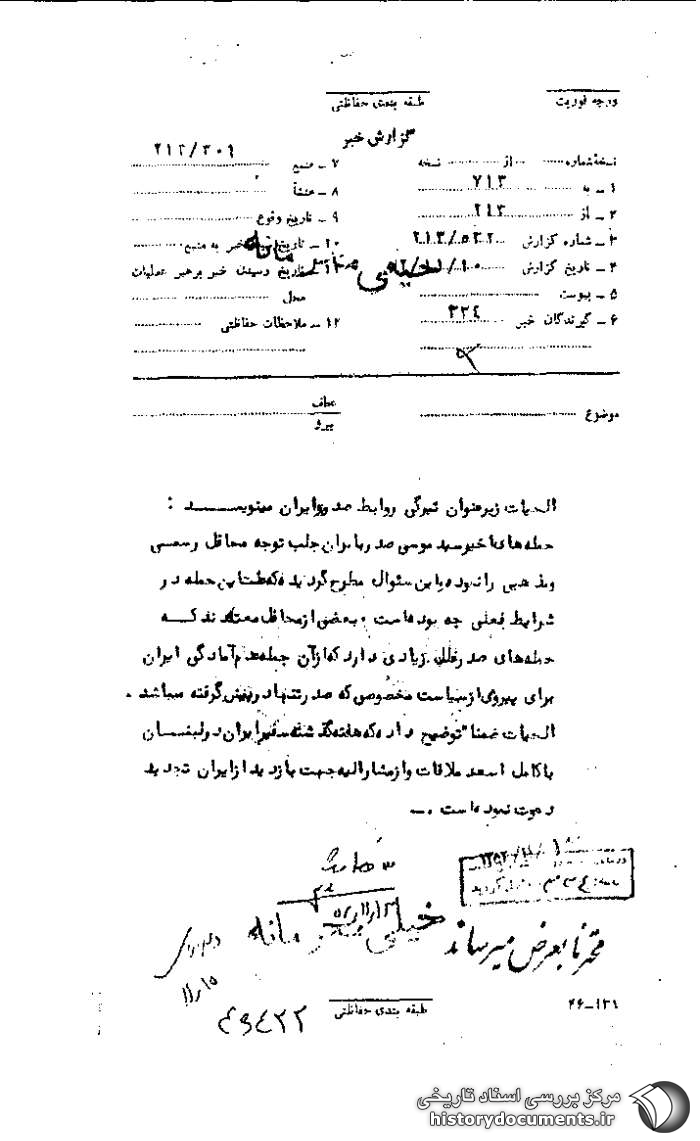 درجه فوریت
طبقه بندی حفاظتی
گزارش خبر
نسخهٔ شماره ........ از ........ نسخه
۱ ـ به ۷۱۳
۲ ـ از ۲۱۳
۳ ـ شماره گزارش ۲۱۳/۵۳۲
۴ ـ تاریخ گزارش
۵ ـ پیوست
۶ ـ گیرندگان خبر ۳۳۴
۷ ـ منبع ۲۱۳/۳۰۹
۸ ـ منشأ
۹ ـ تاریخ وقوع
۱۰ ـ تاریخ خبر به منبع
۱۱ ـ تاریخ رسیدن خبر برهبر عملیات
محل
۱۲ ـ ملاحظات حفاظتی
خیلی محرمانه
موضوع
عطف
پیرو
الحیات زیرعنوان تیرگی روابط صدر و ایران مینویسد :
حمله های اخیر سید موسی صدر بایران جلب توجه محافل رسمی
ومذهبی را نموده و این سئوال مطرح گردیده که علت این حمله در
شرایط فعلی چه بوده است . بعضی از محافل معتقدند که
حمله های صدر علل زیادی دارد که از آن جمله عدم آمادگی ایران
برای پیروی از سیاست مخصوصی که صدر در پیش گرفته میباشد .
الحیات ضمنا" توضیح داده که هفته گذشته سفیر ایران در لبنان
با کامل اسعد ملاقات و از مشارالیه جهت بازدید از ایران تجدید
دعوت نموده است .ـ
خیلی محرمانه
محترما بعرض میرساند
۱۱/۱۵
۴۶ـ۱۳۱
طبقه بندی حفاظتی
مرکز بررسی اسناد تاریخی
historydocuments.ir